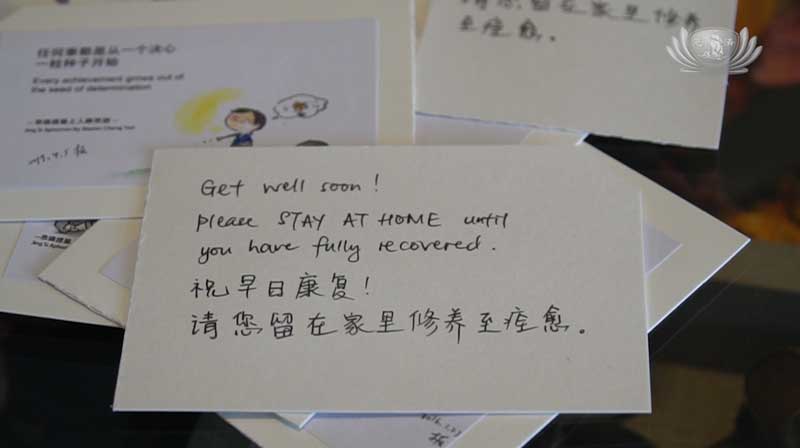 任何事都是从一个决心
一粒种子开始
Every achievement grows out of
the seed of determination
Jing Si Aphorism By Master Cheng Yen
您留在家里修养
至痊愈。
Get well soon!
please STAY AT HOME until
you have fully recovered.
祝早日康复!
请您留在家里修养至痊愈。
Jing Si